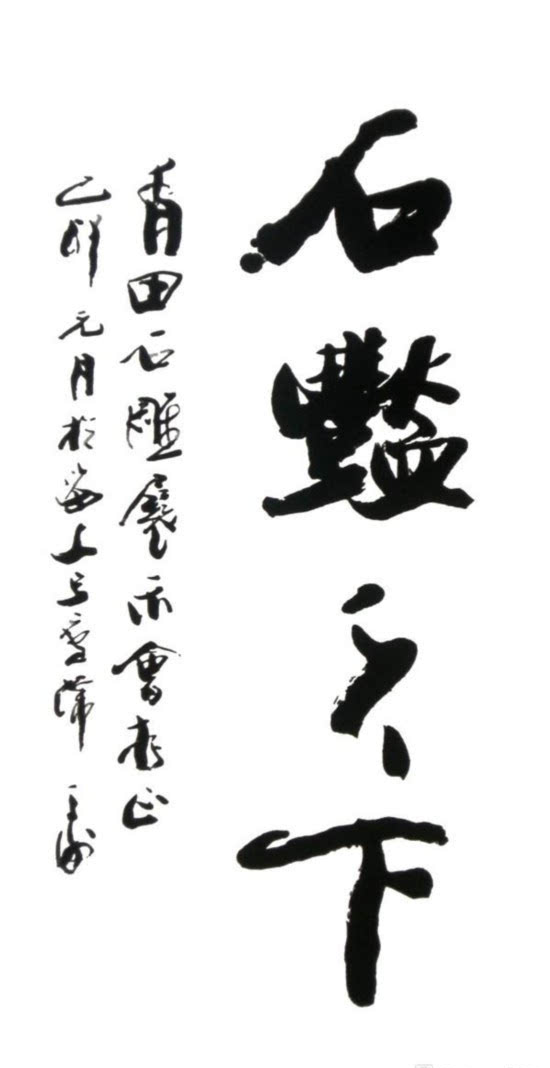 石豔天下
青田石雕展示會存正
元月於海上